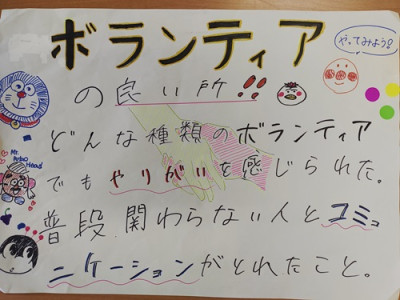 ボランティア
やってみよう!
の良い所!!
どんな種類のボランティア
でもやりがいを感じられた。
Mr.
Potato
Head
普段関わらない人とコミュ
ニケーションがとれたこと。